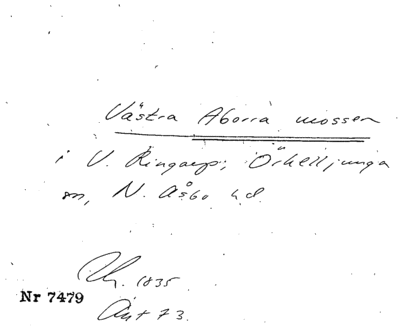 Västra Aborra mossen
i V. Ringarp; Örkelljunga
sn, N. Åsbo hd.
1835
Nr 7479
Ant 73.